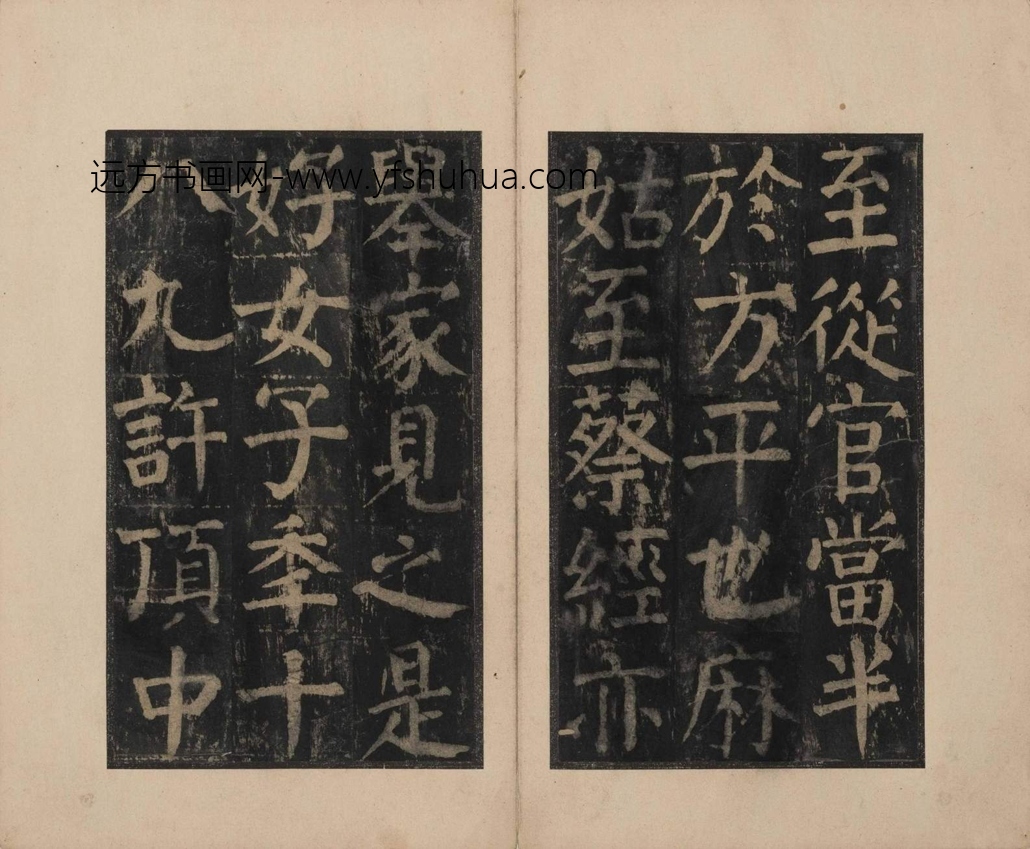 至從官當半
於方平也麻
姑至蔡經亦
舉家見之是
好女子年十
八九許頂中
远方书画网-www.yfshuhua.com